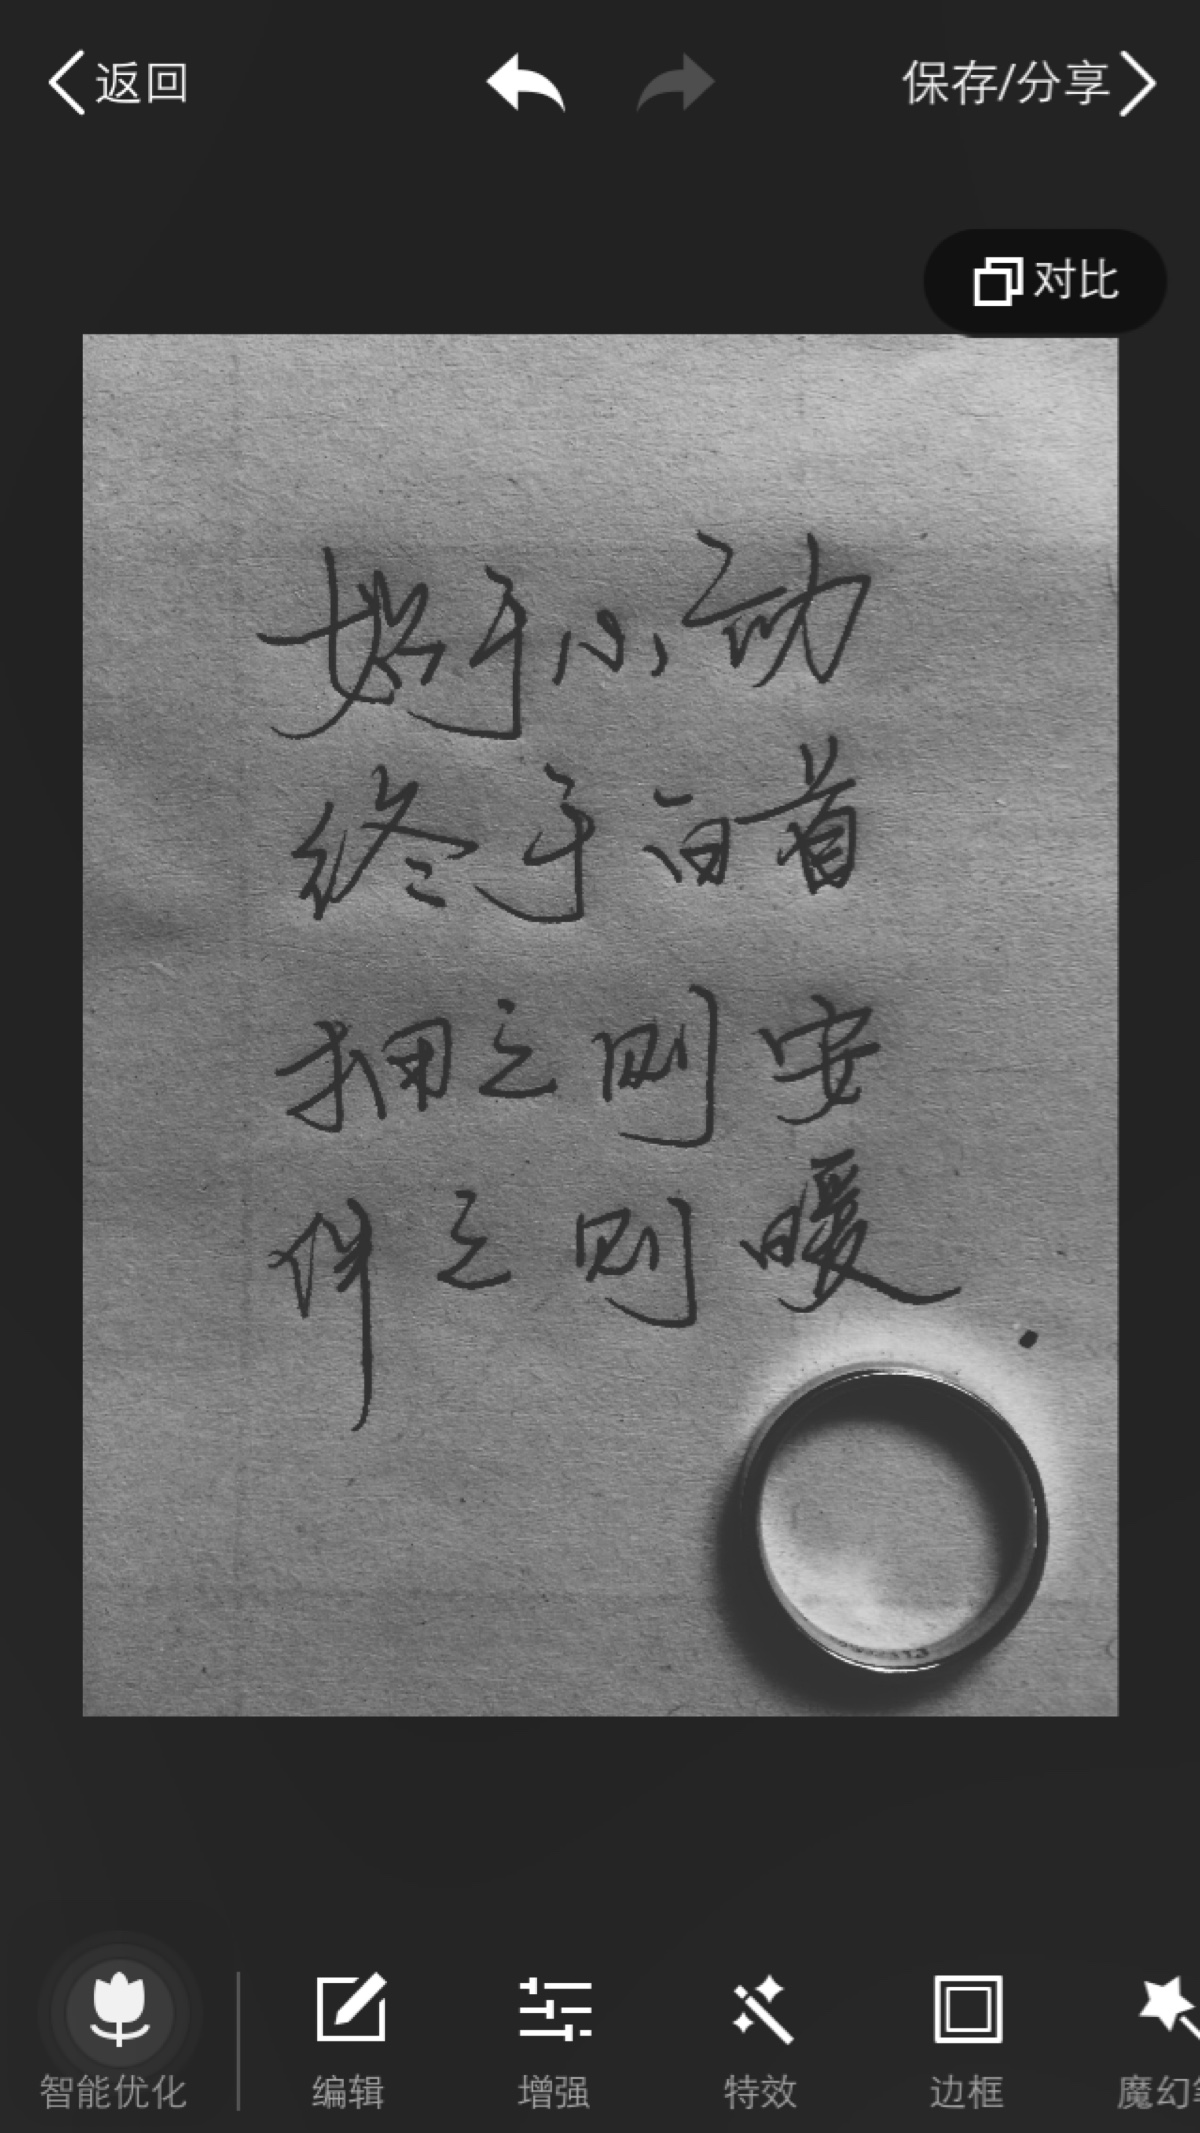 返回
保存/分享
对比
始于心动
终于白首
拥之则安
伴之则暖
智能优化
编辑
增强
特效
边框
魔幻